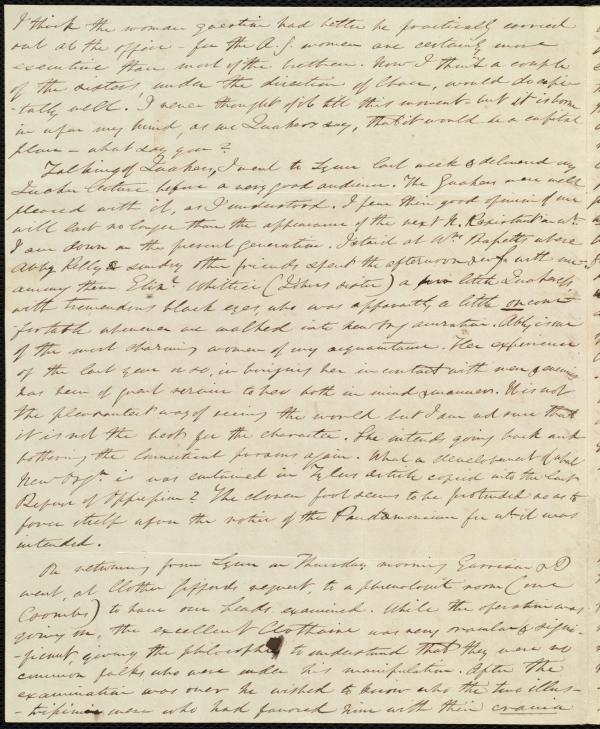 I think the woman question had better be practically carried
out at the office - for the A.S. women are certainly more
executive than most of the brethren. Now I think a couple
of the sisters, under the direction of Chace, would do capi-
-tally well. I never thought of it till this moment - but it is borne
in upon my mind, as we Quakers say, that it would be a capital
plan - what say you?
Talking of Quakers, I went to Lynn last week & delivered my
Quaker lecture before a very good audience. The Quakers were well
pleased with it, as I understood. I fear their good opinion of me
will last no longer than the appearance of the next N. Resistant in wh.
I am down on the present generation. I staid at Wm Bassett's where
Abby Kelly & sundry other friends spent the afternoon & evg with me -
among them Elizth Whittier (John's sister) a little Quakeress
with tremendous black eyes, who was apparently a little uncom-
fortable whenever we walked into her brother's .
of the most charming women of my acquaintance. Her experience
of the last year or so, in bringing her in contact with men & women
has been of great service to her both in mind & manners. It is not
the pleasantest way of seeing the world but I am not sure that
it is not the best for the character. She intends going back and
bothering the Connecticut parsons again. What a development of what
New Orgn. is was contained in Tyler's article copied into the last
Refuge of Oppression? The cloven foot seems to be protruded so as to
force itself upon the notice of the Pandemonium for wh. it was
intended.
On returning from Lynn on Thursday morning Garrison & I
went, at request, to a phrenologist's room (one
Coombs) to have our heads examined. While the operation was
going on, the excellent was very oracular & signi-
-ficant, giving the philosopher to understand that they were no
common folks who were under his manipulation. After the
examination was over he wished to know who the two illus-
-trissimi were who had favored him with their crania